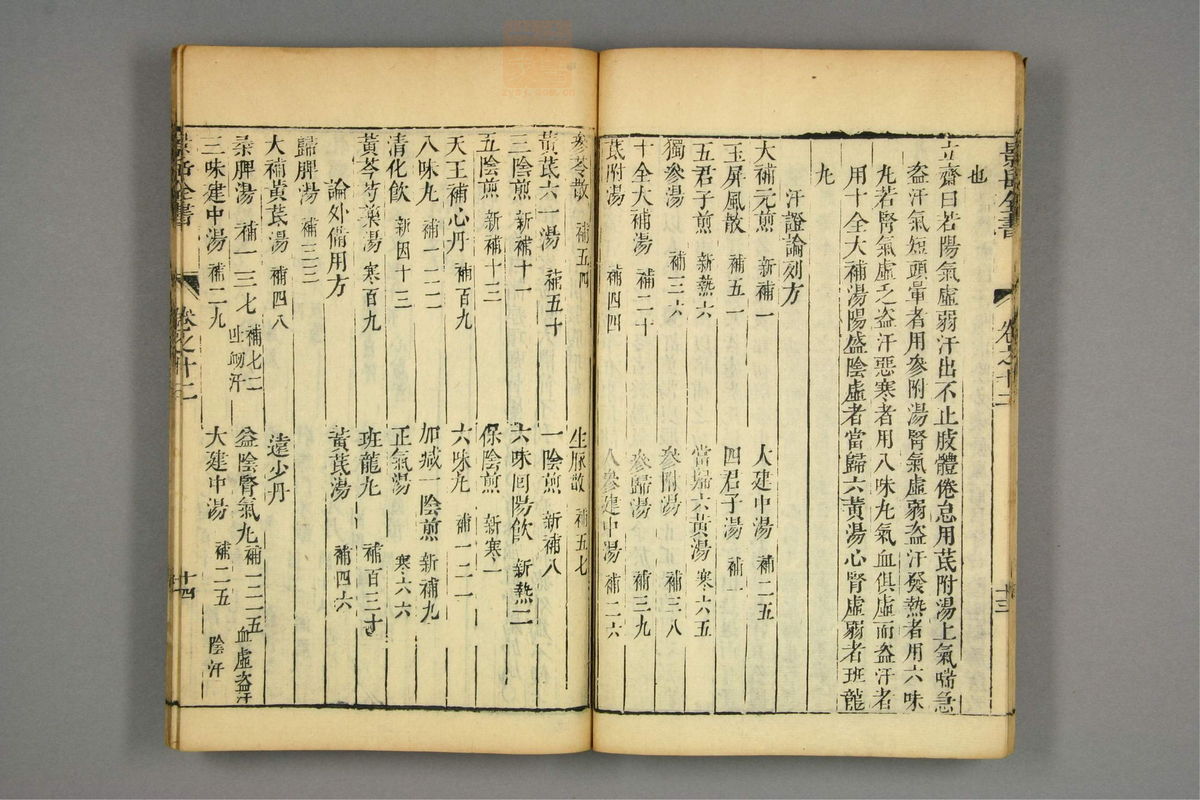 景岳全書 卷之十二 十三
也
立齋曰若陽氣虛弱汗出不止肢體倦怠用芪附湯上氣喘急
盜汗氣短頭暈者用參附湯腎氣虛弱盜汗發熱者用六味
丸若腎氣虛乏盜汗惡寒者用八味丸氣血俱虛而盜汗者
用十全大補湯陽盛陰虛者當歸六黃湯心腎虛弱者班龍
丸
汗證論列方
大補元煎 新補一 大建中湯 補二五
玉屏風散 補五一 四君子湯 補一
五君子煎 新熱六 當歸六黃湯 寒六五
獨參湯 補三六 參附湯 補三八
十全大補湯 補二十 參歸湯 補三九
芪附湯 補四四 人參建中湯 補二六
參苓散 補五四 生脈散 補五七
黃芪六一湯 補五十 一陰煎 新補八
三陰煎 新補十一 六味回陽飲 新熱二
五陰煎 新補十三 保陰煎 新寒一
天王補心丹 補百九 六味丸 補一二一
八味丸 補一二二 加減一陰煎 新補九
清化飲 新因十三 正氣湯 寒六六
黃芩芍藥湯 寒百九 班龍丸 補百三十
論外備用方 黃芪湯 補四六
歸脾湯 補三三
大補黃芪湯 補四八 遠少丹
柔脾湯 補一三七 補七二 吐衂汗 益陰腎氣丸 補一二五 血虛盜汗
三味建中湯 補二九 大建中湯 補二五 陰汗
景岳全書 卷之十二 十四